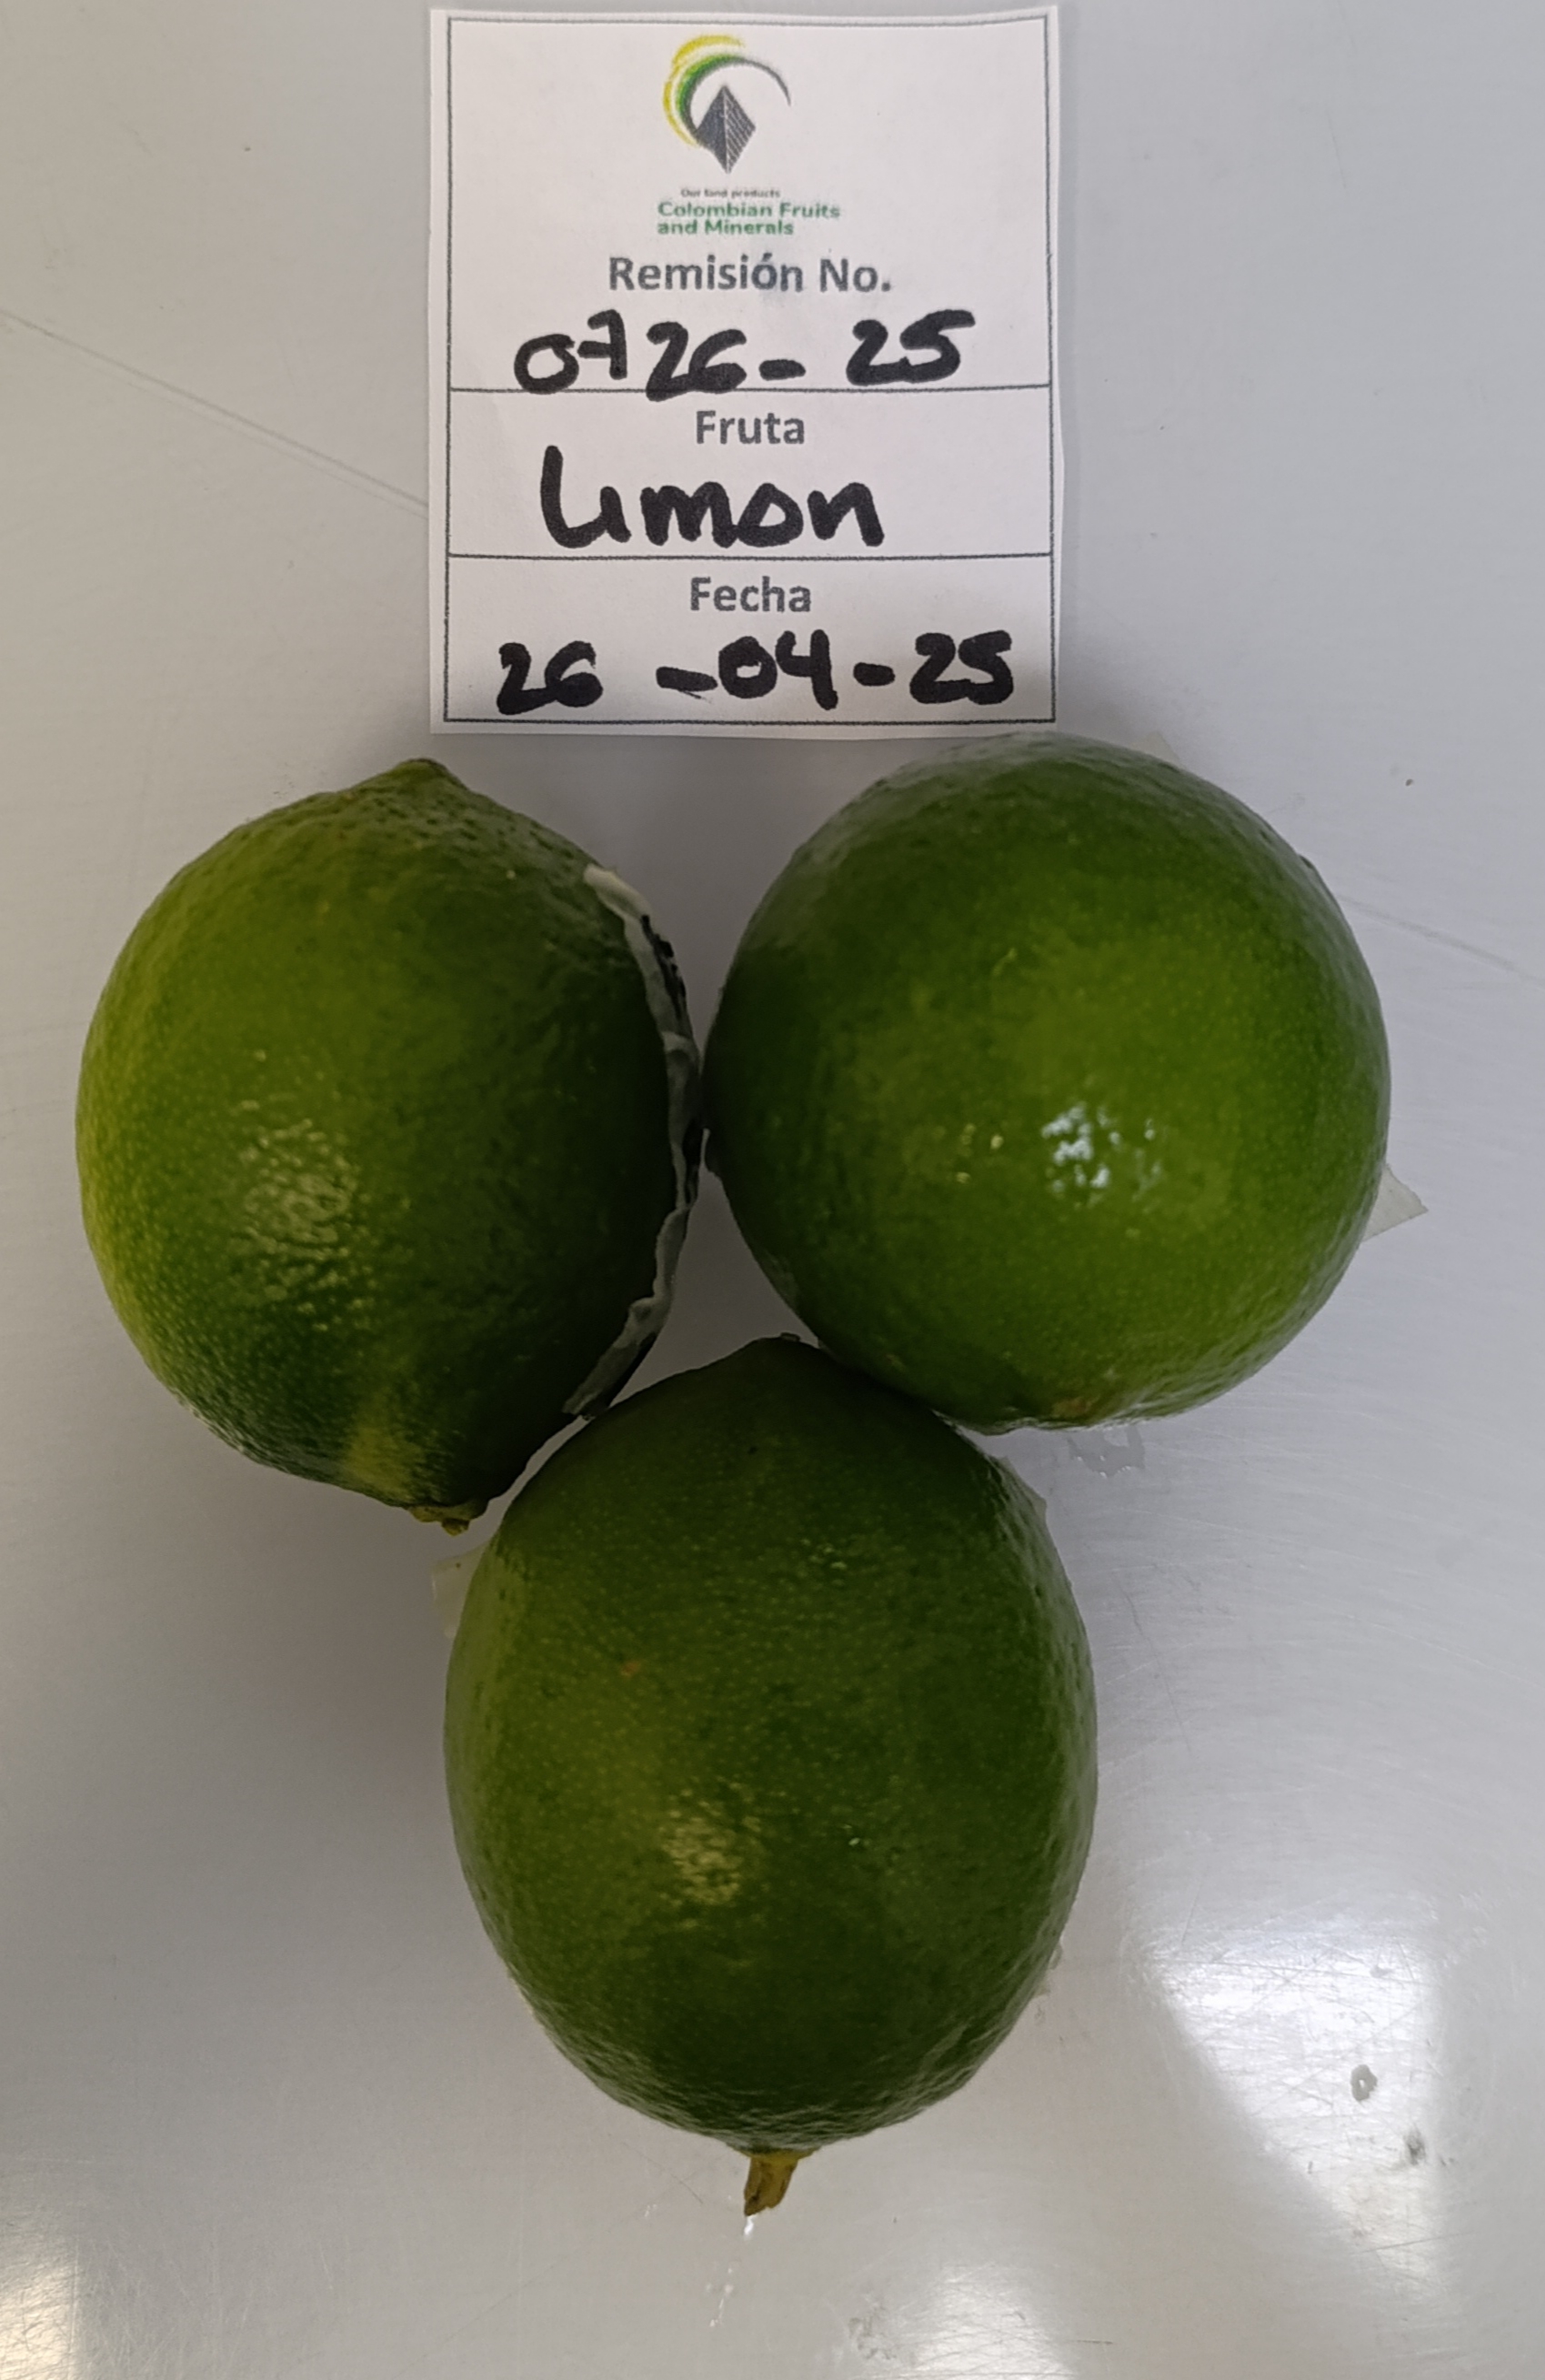 Our land products
Colombian Fruits
and Minerals
Remisión No.
0726-25
Fruta
Limon
Fecha
26-04-25